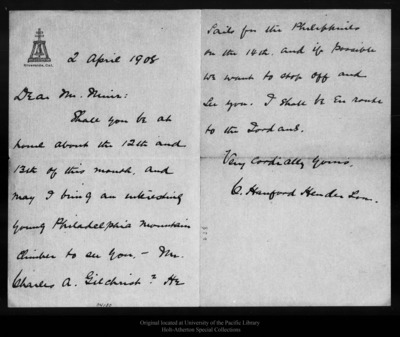 Riverside, Cal.
2 April 1908
Dear Mr. Muir:
Shall you be at
home about the 12th and
13th of this month, and
may I bring an interesting
young Philadelphia mountain
climber to see you, - Mr.
Charles A. Gilchrist? He
sails for the Philippines
on the 14th. and if possible
we want to stop off and
see you. I shall be en route
to the
Very cordially yours,
C. Hanford Henderson.
Original located at University of the Pacific Library
Holt-Atherton Special Collections